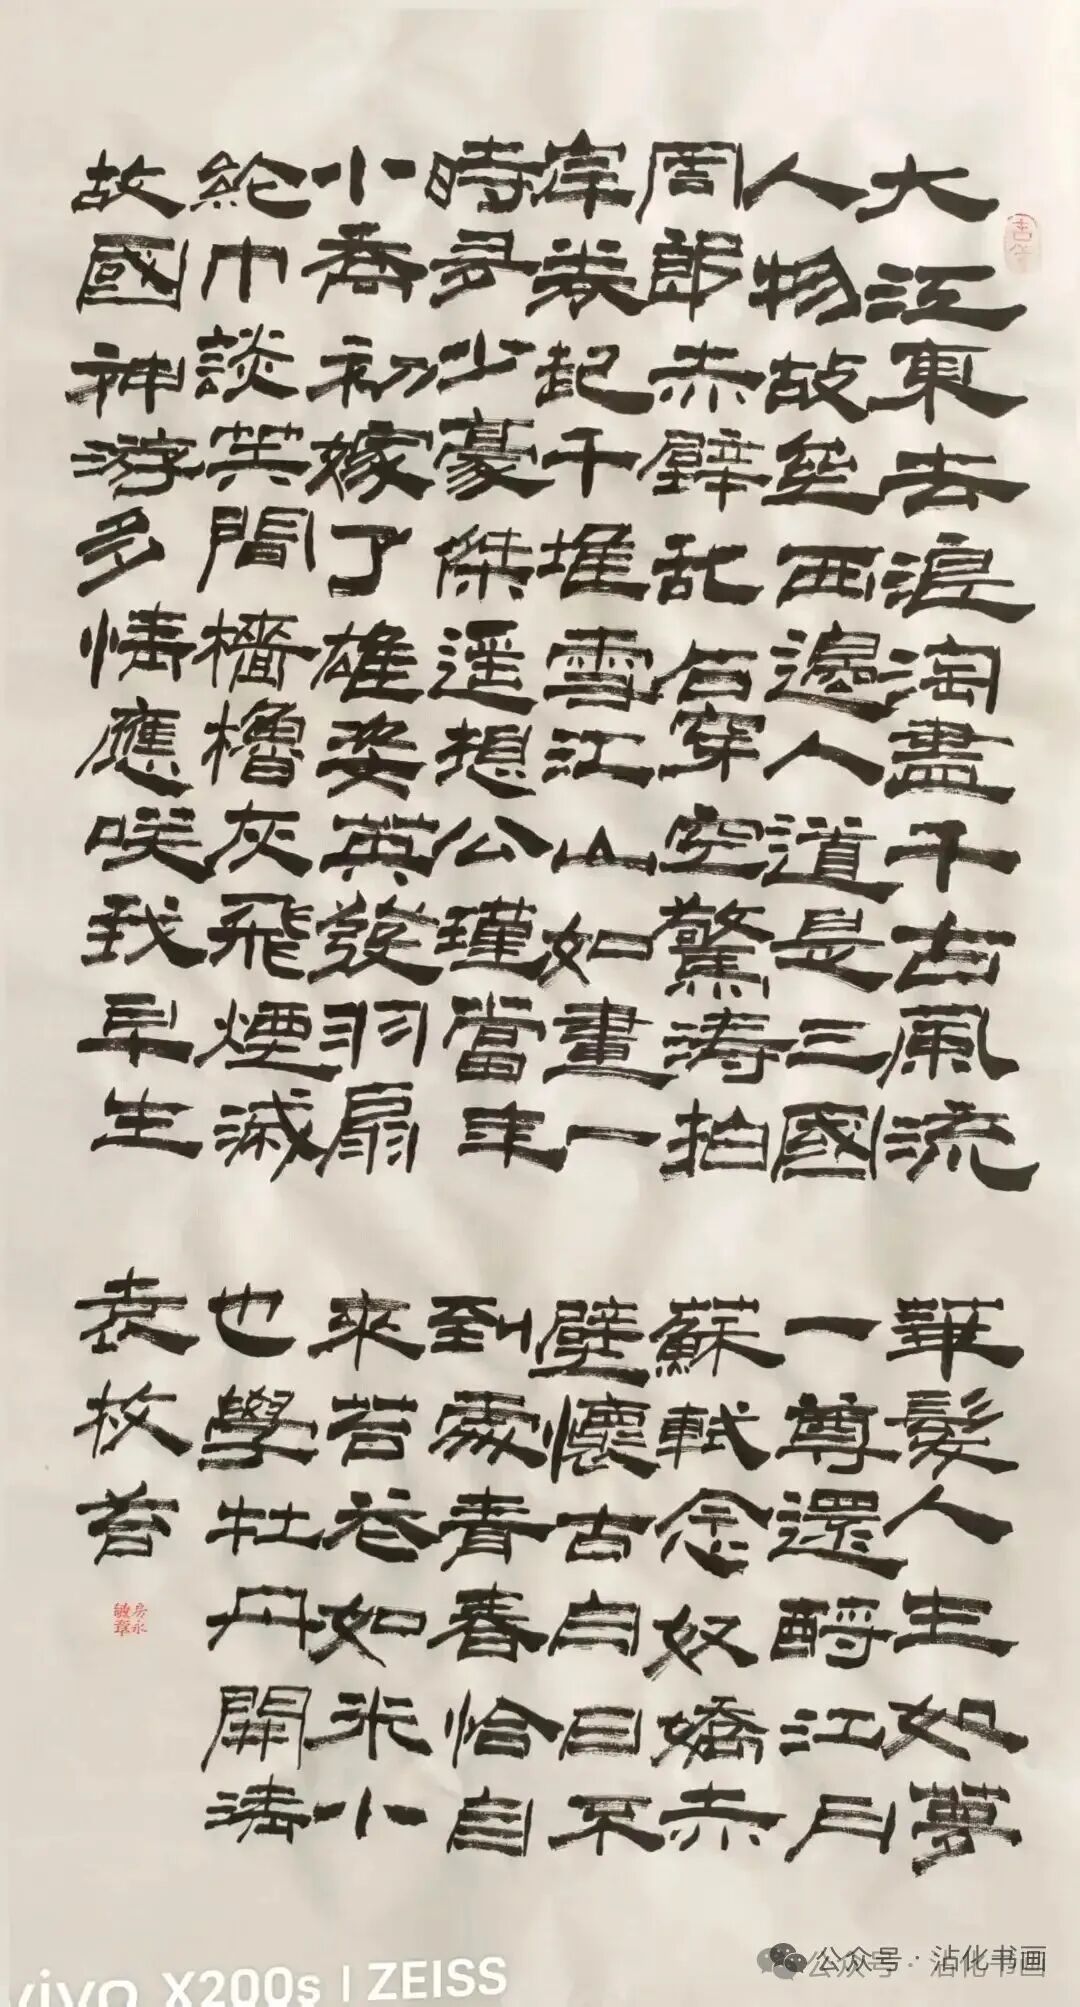 大江東去浪淘盡千古風流
人物故壘西邊人道是三國
周郎赤壁乱石穿空驚濤拍
岸卷起千堆雪江山如畫一
時多少豪傑遥想公瑾當年
小喬初嫁了雄姿英發羽扇
綸巾談笑間檣櫓灰飛煙滅
故國神游多情應咲我早生
華髮人生如夢
一尊還酹江月
蘇軾念奴嬌赤
壁懷古白日不
到處青春恰自
來苔花如米小
也學牡丹開清
袁枚苔
房永敏章
vivo X200s | ZEISS
公众号 · 沾化书画